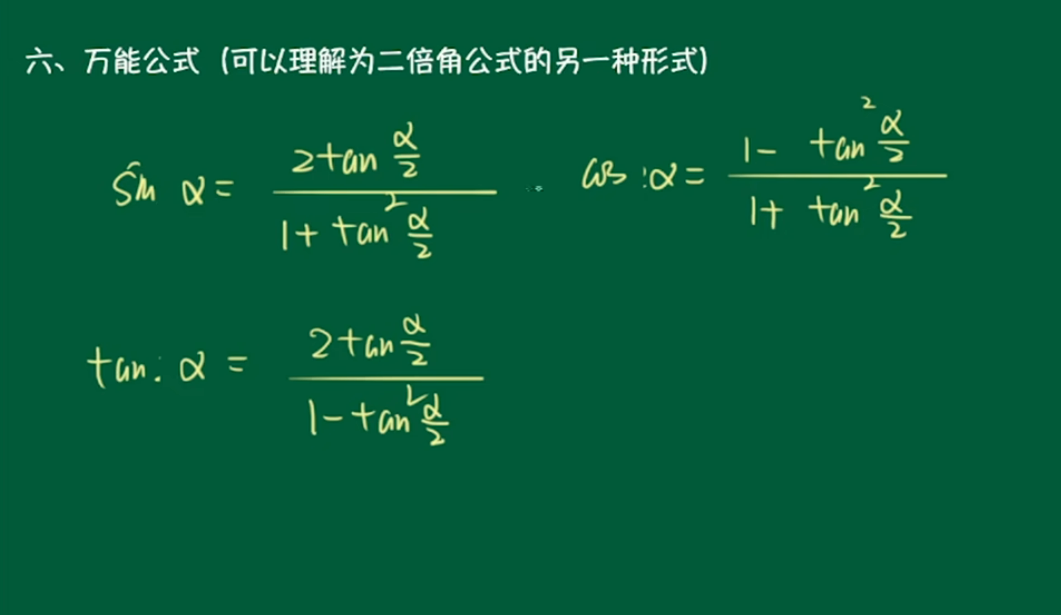 六、万能公式（可以理解为二倍角公式的另一种形式）
sin α = \frac{2tan \frac{α}{2}}{1+tan^2 \frac{α}{2}}  cos :α = \frac{1- tan^2 \frac{α}{2}}{1+ tan^2 \frac{α}{2}}
tan: α = \frac{2tan \frac{α}{2}}{1-tan^2 \frac{α}{2}}